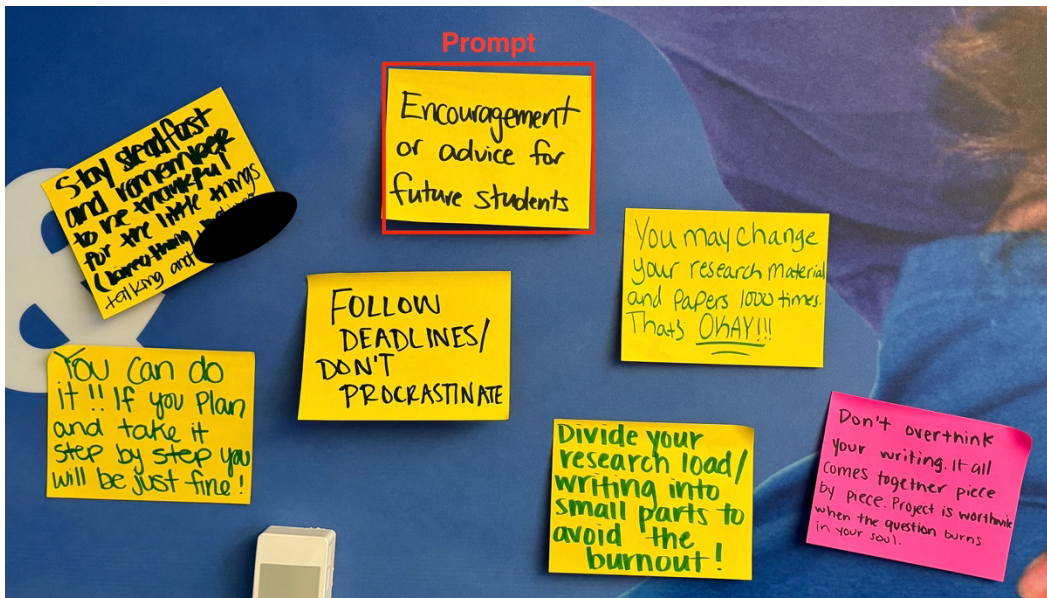 Prompt
Encouragement
or advice for
future students
Stay steadfast
and remember
to be thankful
for the little things
talking and
You may change
your research material
and papers 1000 times.
That's OKAY!!!
FOLLOW
DEADLINES/
DON'T
PROCRASTINATE
You can do
it!! If you plan
and take it
step by step you
will be just fine!
Divide your
research load/
writing into
small parts to
avoid the
burnout!
Don't overthink
your writing. It all
comes together piece
by piece. Project is worthwhile
when the question burns
in your soul.